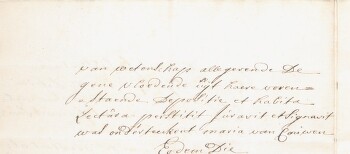 van wetenschap alle gevende De
gene vlordende uijt haere voren=
staende Depositie et habita
Lectura persistit juravit et signavit
was ondertekent maria van
Eodem Die